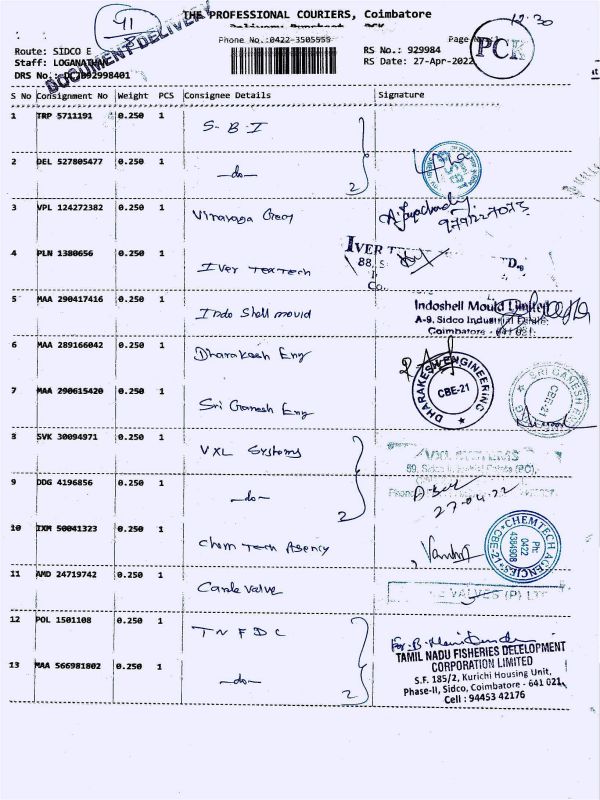 41
THE PROFESSIONAL COURIERS, Coimbatore
12.30
DOCUMENT DELIVERY
Phone No.:0422-3505555
PCK
Route: SIDCO E
RS No.: 929984
Staff: LOGANATHAN
RS Date: 27-Apr-2022
S No Consignment No Weight PCS Consignee Details Signature
1 TRP 5711191 0.250 1 S.B.I
2 DEL 527805477 0.250 1 —do— 2
3 VPL 124272382 0.250 1
4 PLN 1380656 0.250 1 Iver Tex Tech
IVER T
88, S
Co.
5 MAA 290417416 0.250 1 Indo Shell mould
Indoshell Mould Limited
A-9, Sidco Industrial Estate,
Coimbatore - 641 021.
6 MAA 289166042 0.250 1 Dharakesh Eng
DHARAKESH ENGINEERING
CBE-21
7 MAA 290615420 0.250 1 Sri Ganesh Eng
SRI GANESH
CBE-21
8 SVK 30094971 0.250 1 VXL Systems
VXL SYSTEMS
9 DDG 4196856 0.250 1 —do— 2
27.04.22
10 IXM 50041323 0.250 1 Chem Tech Agency
CHEMTECH AGENCIES
CBE-21
Ph:
0422
4384908
11 AMD 24719742 0.250 1 Carde Valve
VALVES (P) LTD
12 POL 1501108 0.250 1 TNFDC
TAMIL NADU FISHERIES DEVELOPMENT
CORPORATION LIMITED
S.F. 185/2, Kurichi Housing Unit,
Phase-II, Sidco, Coimbatore - 641 021,
Cell : 94453 42176
13 MAA 566981802 0.250 1 —do— 2